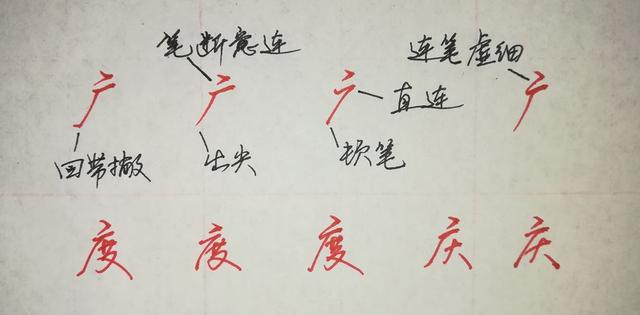 笔断意连 连笔虚细
广 广 广 广
直连
回带撇 出尖 顿笔
度 度 度 庆 庆